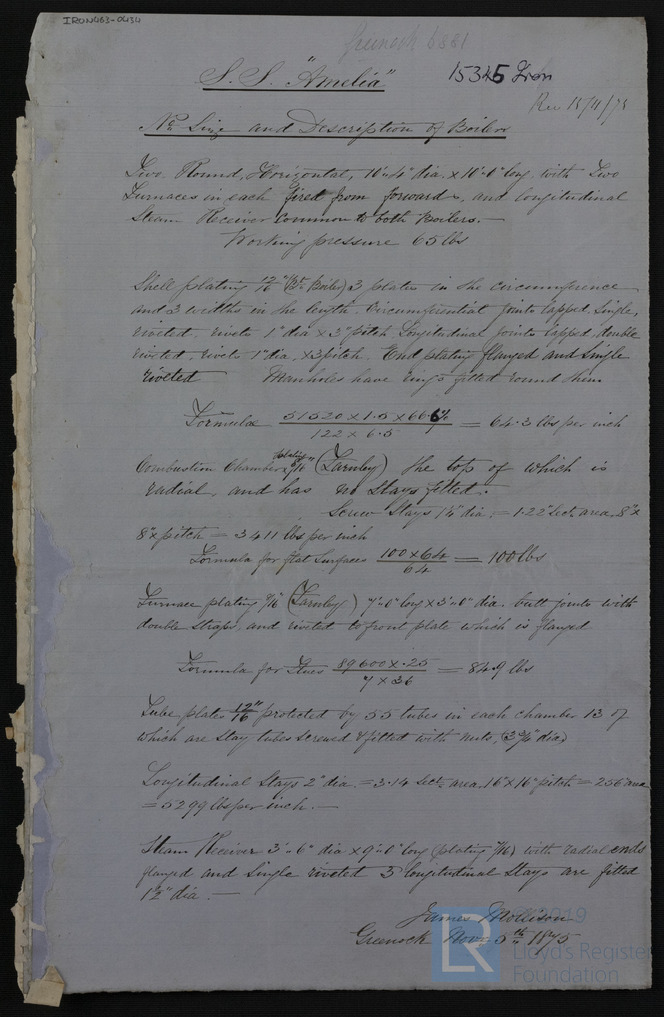 IRON463-0434
Greenock 6381
S. S. "Amelia" 15345 Iron
Rec 15/11/75
No. Size and Description of Boilers
Two Round, Horizontal, 10'-4" dia. x 10'-0" long, with Two
Furnaces in each fired from forward, and longitudinal
Steam Receiver common to both Boilers. —
Working pressure 65 lbs
Shell plating 12/16" (Bt. Boiler) 3 plates in the circumference
and 3 widths in the length. Circumferential joints lapped, single,
riveted, rivets 1" dia x 3" pitch. Longitudinal joints lapped, double
riveted, rivets 1" dia. x 3 pitch. End plating flanged and single
riveted Manholes have rings fitted round them
Formula 51520 x 1.5 x 66.6% / 122 x 6.5 = 64.3 lbs per inch
Combustion Chamber plating 8/16" (Farnley) the top of which is
radial, and has no stays fitted.
Screw Stays 1¼" dia. = 1.22" Sect. area. 8" x
8" x pitch = 3411 lbs per inch
Formula for flat Surfaces 100 x 64 / 64 = 100 lbs
Furnace plating 8/16" (Farnley) 7'-0" long x 3'-0" dia. butt joints with
double straps, and riveted to front plate which is flanged
Formula for Flues 89600 x .25 / 7 x 36 = 84.9 lbs
Tube plates 12/16" protected by 55 tubes in each chamber 13 of
which are Stay tubes screwed & fitted with nuts, (3¼" dia)
Longitudinal Stays 2" dia. = 3.14 Sect. area. 16" x 16" pitch = 256" area
= 5299 lbs per inch. —
Steam Receiver 3'-6" dia x 9'-0" long (plating 7/16) with radial ends
flanged and Single riveted 3 longitudinal Stays are fitted
1½" dia. —
James Mollison
Greenock Nov. 5th 1875
2019
LR
Lloyd's Register
Foundation